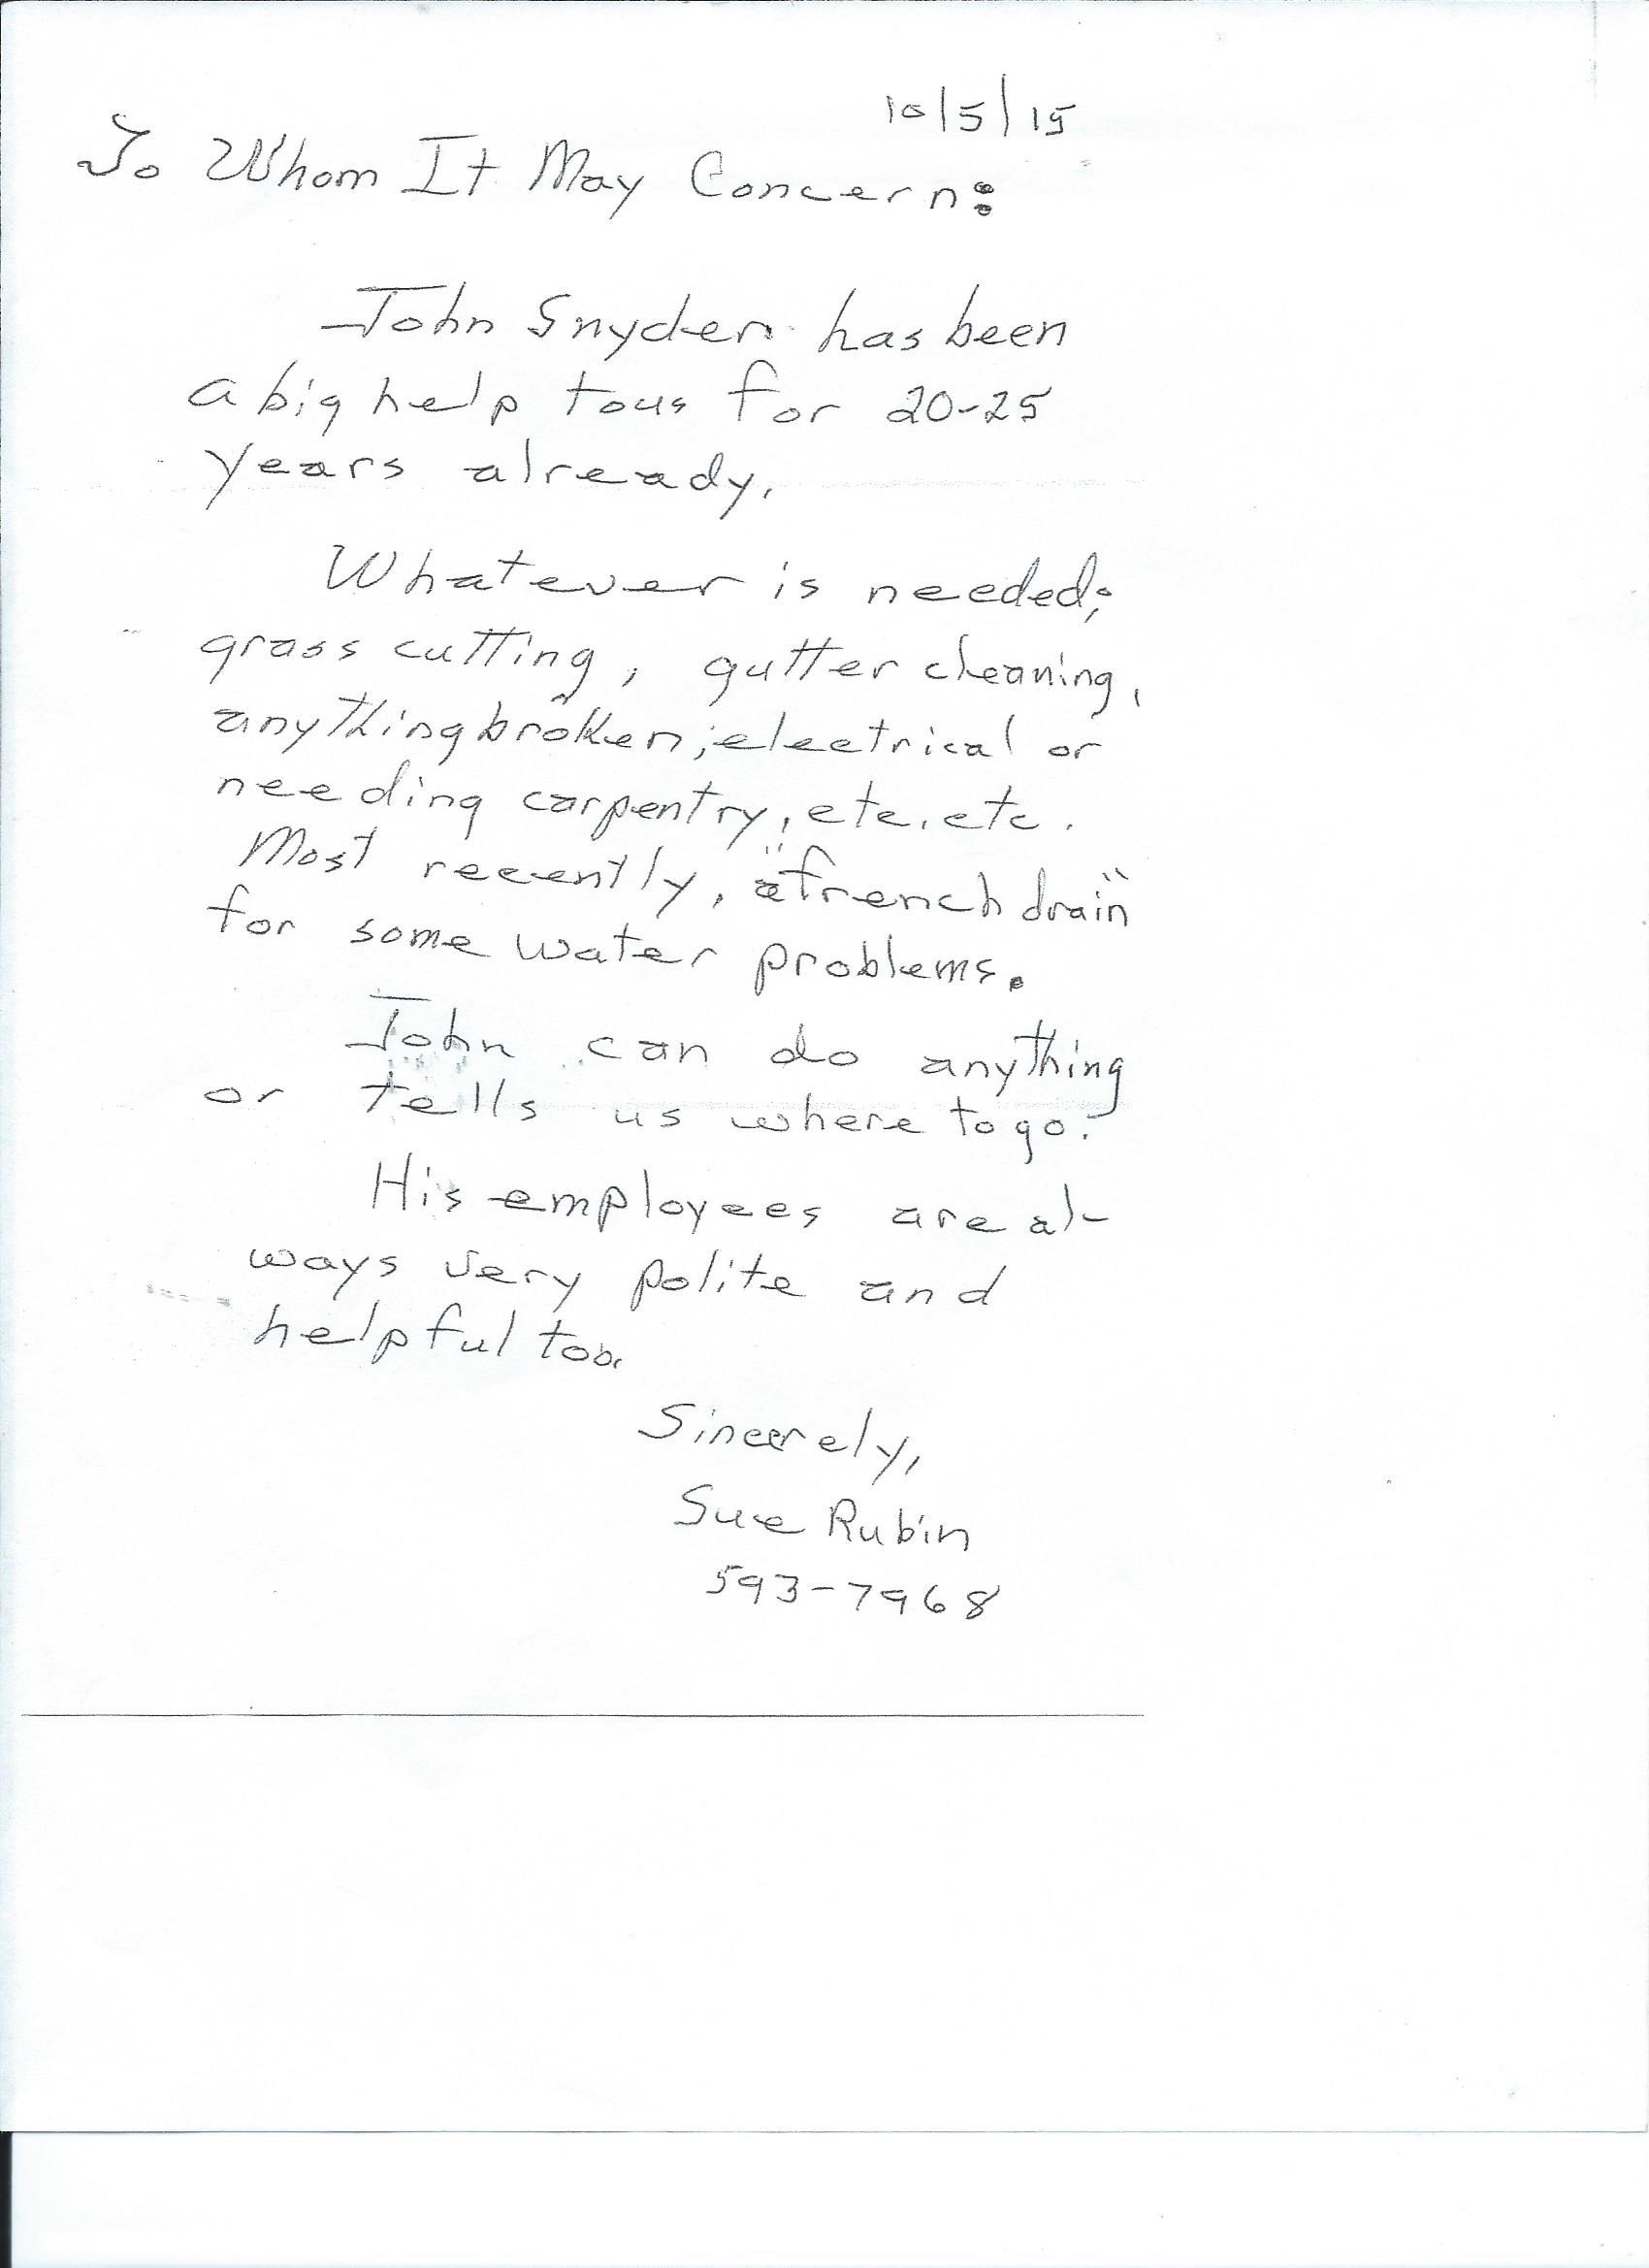 10/5/15
To Whom It May Concern:
John Snyder has been
a big help to us for 20-25
years already.
Whatever is needed;
grass cutting, gutter cleaning,
anything broken; electrical or
needing carpentry, etc. etc.
Most recently, a "french drain"
for some water problems.
John can do anything
or tells us where to go.
His employees are al-
ways very polite and
helpful too.
Sincerely,
Sue Rubin
593-7968